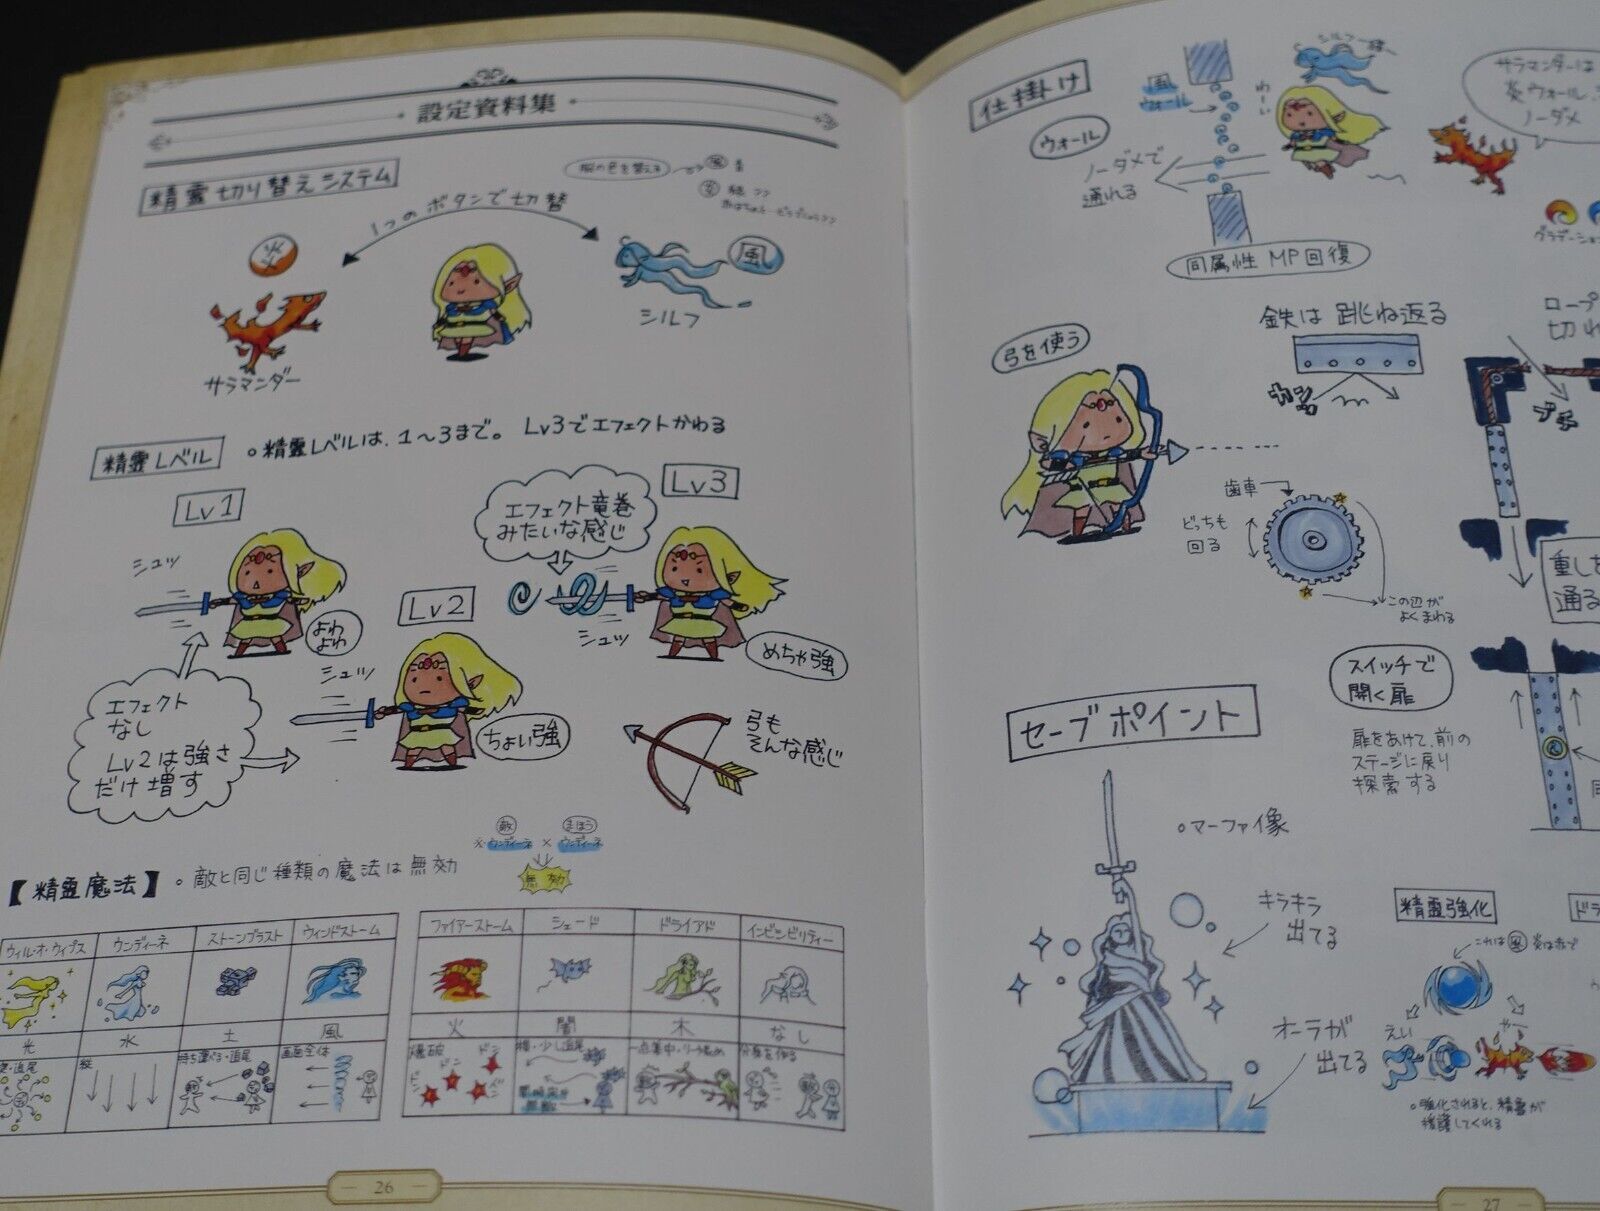 設定資料集
精霊切り替えシステム
服の色を変える
風 青
1つのボタンで切替
炎
風
サラマンダー
シルフ
精霊レベル
○精霊レベルは、1〜3まで。 Lv3でエフェクトかわる
Lv1
シュッ
よわ
よわ
Lv2
シュッ
ちょい強
Lv3
エフェクト竜巻
みたいな感じ
シュッ
めちゃ強
エフェクト
なし
Lv2は強さ
だけ増す
弓も
そんな感じ
【精霊魔法】
○敵と同じ種類の魔法は無効
敵
まほう
ウンディーネ × ウンディーネ
無効
ウィル・オ・ウィプス
ウンディーネ
ストーンブラスト
ウィンドストーム
光
水
土
風
追尾
縦
持ち運べる・追尾
画面全体
ファイアーストーム
シェード
ドライアド
インビンビリティー
火
闇
木
なし
爆破
ドン
ドン
ドン
ドン
横・少し追尾
一点集中・リーチ長め
分身を作る
26
仕掛け
ウォール
風
ウォール
ノーダメで
通れる
わーい
シルフ一緒〜
サラマンダーは
炎ウォール
ノーダメ
グラデーション
同属性 MP回復
弓を使う
鉄は 跳ね返る
カンッ
歯車
どっちも
回る
この辺が
よくまわる
ロープ
切れ
ブチ
重し
通る
スイッチで
開く扉
扉をあけて、前の
ステージに戻り
探索する
セーブポイント
○マーファ像
キラキラ
出てる
オーラが
出てる
精霊強化
ドラ
これは風 炎は赤で
えい
やー
○強化されると、精霊が
援護してくれる
27